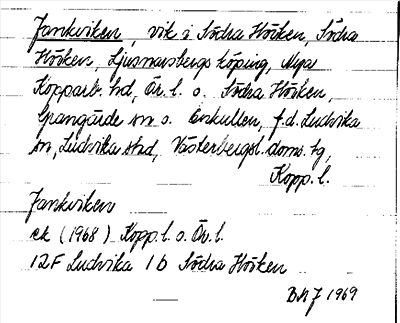 Jankviken, vik i Södra Hörken, Södra
Hörken, Ljusnarsbergs köping, Nya
Kopparb. hd, Ör. l. o. Södra Hörken,
Grangärde sn o. Enkullen, f.d. Ludvika
sn, Ludvika stad, Västerbergsl. doms. tg,
Kopp. l.
Jankviken
ek (1968) Kopp. l. o. Ör. l.
12F Ludvika 1b Södra Hörken
1969